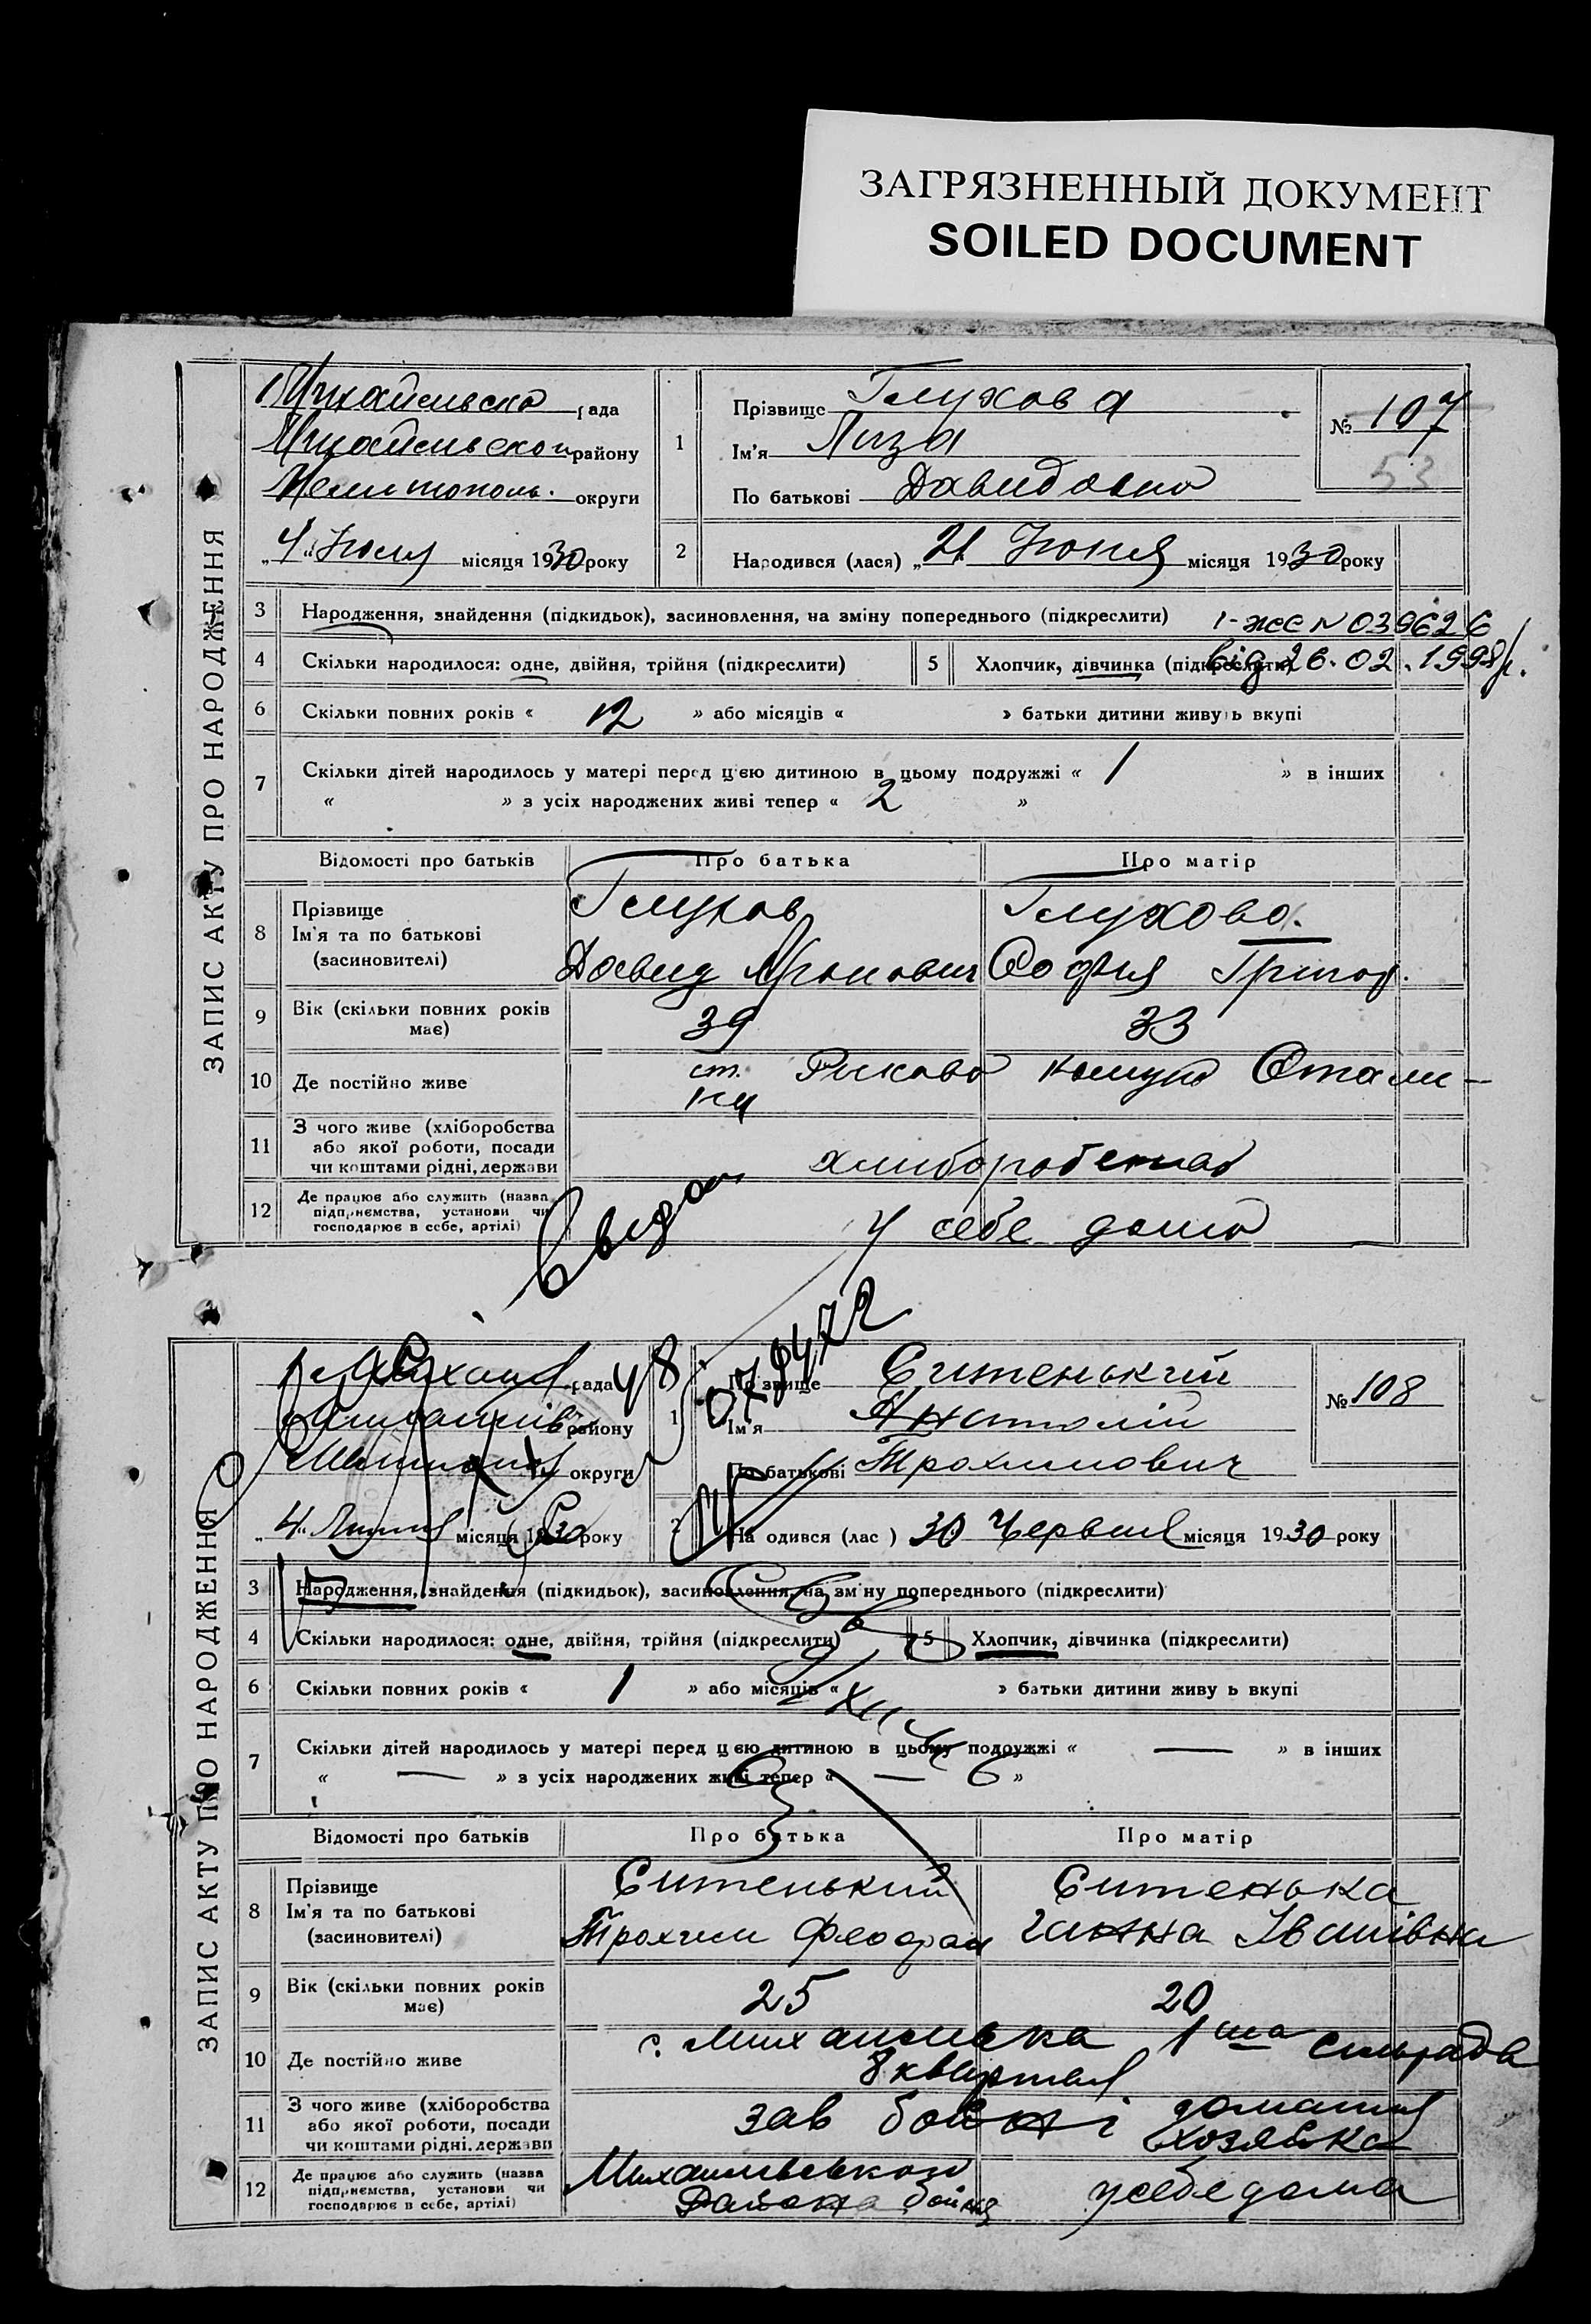 ЗАГРЯЗНЕННЫЙ ДОКУМЕНТ
SOILED DOCUMENT
ЗАПИС АКТУ ПРО НАРОДЖЕННЯ
рада
району
Мелитополь. округи
„4“ Июля місяця 1930 року
1
Прізвище Глухова
Ім'я Лиза
По батькові Давидовна
№ 107
53
2
Народився (лася) „21 Июня місяця 1930 року
3 Народження, знайдення (підкидьок), засиновлення, на зміну попереднього (підкреслити)
1-жс N 039626
від 26.02.1998р.
4 Скільки народилося: одне, двійня, трійня (підкреслити)
5 Хлопчик, дівчинка (підкреслити)
6 Скільки повних років « 12 » або місяців « » батьки дитини живуть вкупі
7 Скільки дітей народилось у матері перед цією дитиною в цьому подружжі « 1 » в інших
« » з усіх народжених живі тепер « 2 »
Відомості про батьків Про батька Про матір
8 Прізвище
Ім'я та по батькові
(засиновителі)
Глухов
Давид
Глухова.
София Григор.
9 Вік (скільки повних років має)
39
33
10 Де постійно живе
ст. Риково комуна Стали-
11 З чого живе (хліборобства
або якої роботи, посади
чи коштами рідні, держави
12 Де працює або служить (назва
підприємства, установи чи
господарює в себе, артілі)
У себе дома
078472
ЗАПИС АКТУ ПРО НАРОДЖЕННЯ
рада
району
округи
„4“ Липня місяця 1930 року
1
Прізвище Ситенький
Ім'я Анатолій
По батькові Трохимович
№ 108
2
Народився (лася) 30 Червня місяця 1930 року
3 Народження, знайдення (підкидьок), засиновлення, на зміну попереднього (підкреслити)
4 Скільки народилося: одне, двійня, трійня (підкреслити)
5 Хлопчик, дівчинка (підкреслити)
6 Скільки повних років « 1 » або місяців « » батьки дитини живуть вкупі
7 Скільки дітей народилось у матері перед цією дитиною в цьому подружжі « — » в інших
« — » з усіх народжених живі тепер « — »
Відомості про батьків Про батька Про матір
8 Прізвище
Ім'я та по батькові
(засиновителі)
Ситенький
Трохим
Ситенька
Ганна Іванівна
9 Вік (скільки повних років має)
25
20
10 Де постійно живе
с. Михайлівка 1ша сильрада
8 квартал
11 З чого живе (хліборобства
або якої роботи, посади
чи коштами рідні, держави
зав бойні
домашня
хозяйка
12 Де працює або служить (назва
підприємства, установи чи
господарює в себе, артілі)
Михайлівського
Района бойня
у себе дома